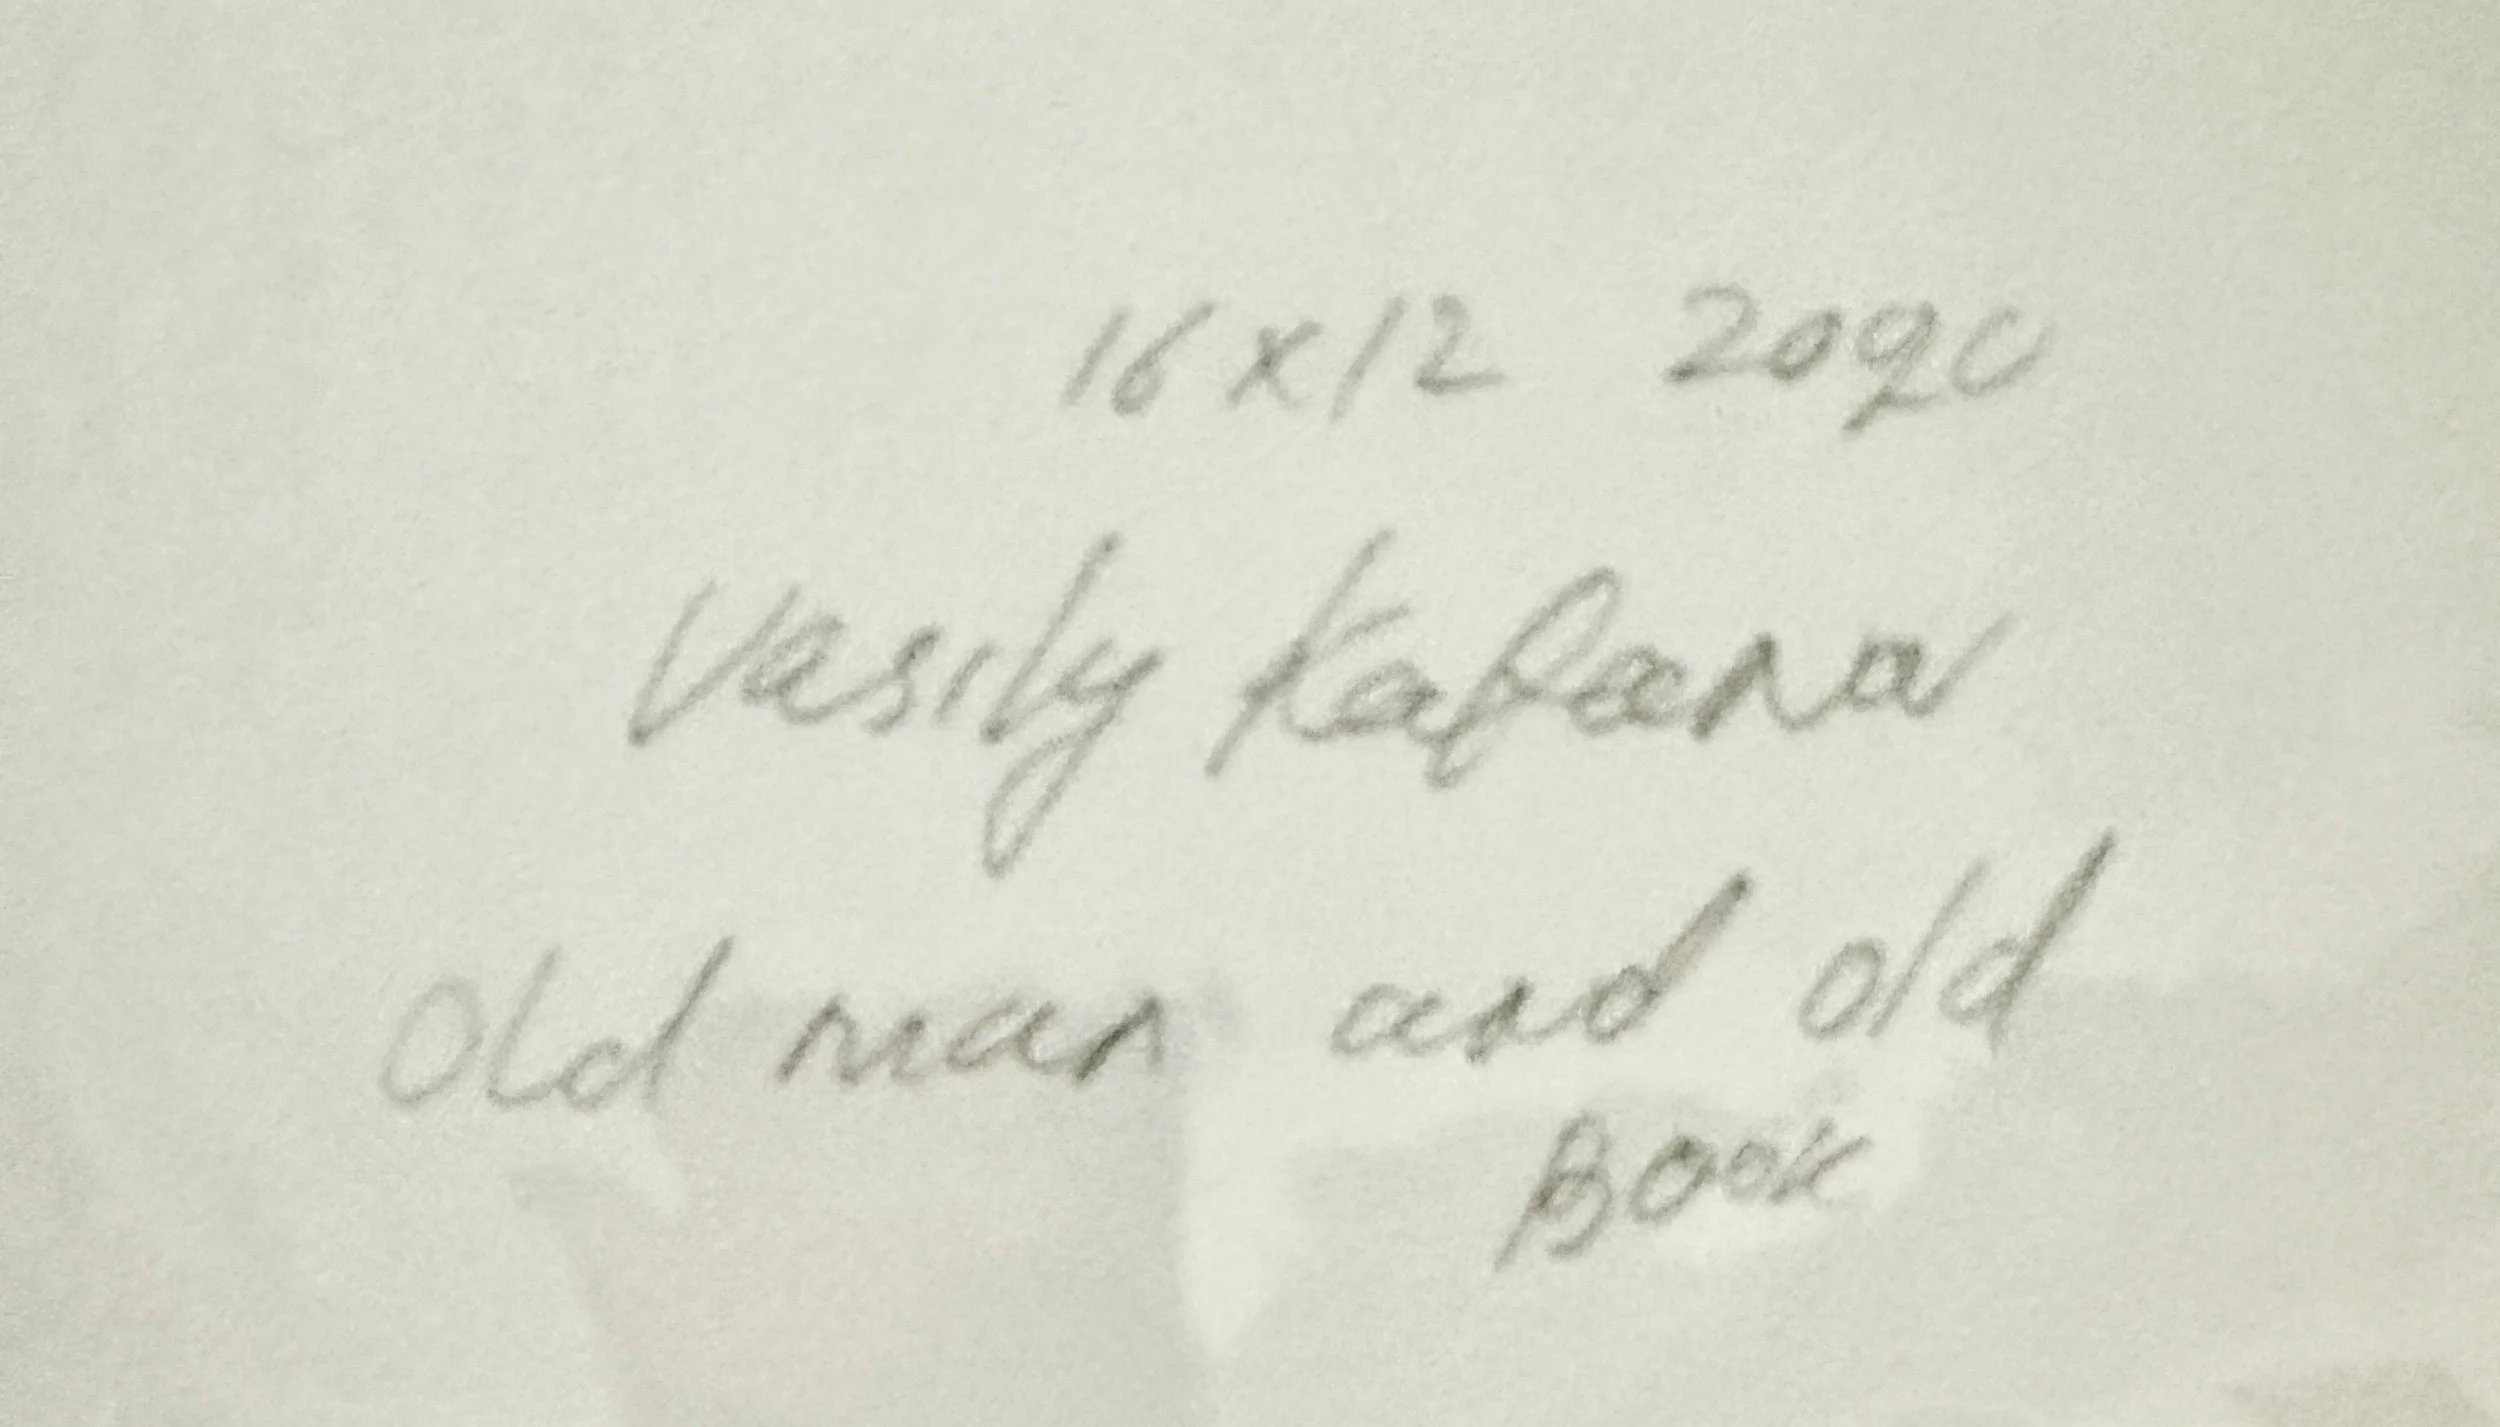 16 x 12 2020
Vasily Kafanov
Old man and old
Book